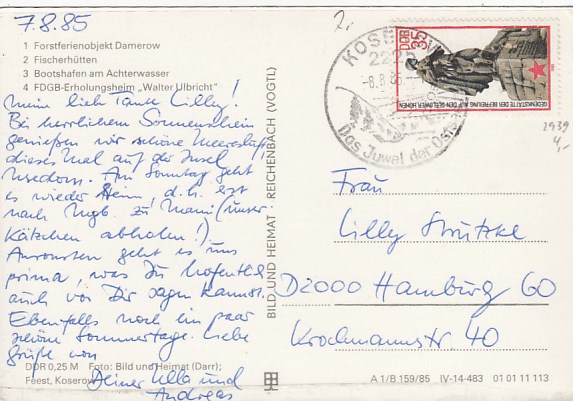 7.8.85
1 Forstferienobjekt Damerow
2 Fischerhütten
3 Bootshafen am Achterwasser
4 FDGB-Erholungsheim „Walter Ulbricht"
Mein lieb Tante Lilly!
Bei herrlichem Sonnenschein
genießen wir schöne Meeresluft,
dieses Mal auf der Insel
Usedom. Am Sonntag geht
es wieder Heim d.h. erst
nach Mgb. zu Mami (unser
Kätzchen abholen!)
Ansonsten geht es uns
prima, was Du hoffentlich
auch von Dir sagen kannst.
Ebenfalls noch ein paar
schöne Sommertage. Liebe
Grüße von
Deiner Ulla und
Andreas
DDR 0,25 M Foto: Bild und Heimat (Darr);
Feest, Koserow
BILD UND HEIMAT REICHENBACH (VOGTL)
2,-
KOSE
222
-8.8.85
Das Juwel der Ost
DDR 35
GEDENKSTÄTTE DER BEFREIUNG AUF DEN SEELOWER HÖHEN
2939
4,-
Frau
Lilly
D2000 Hamburg 60
Krochmannstr 40
A 1/B 159/85 IV-14-483 01 01 11 113